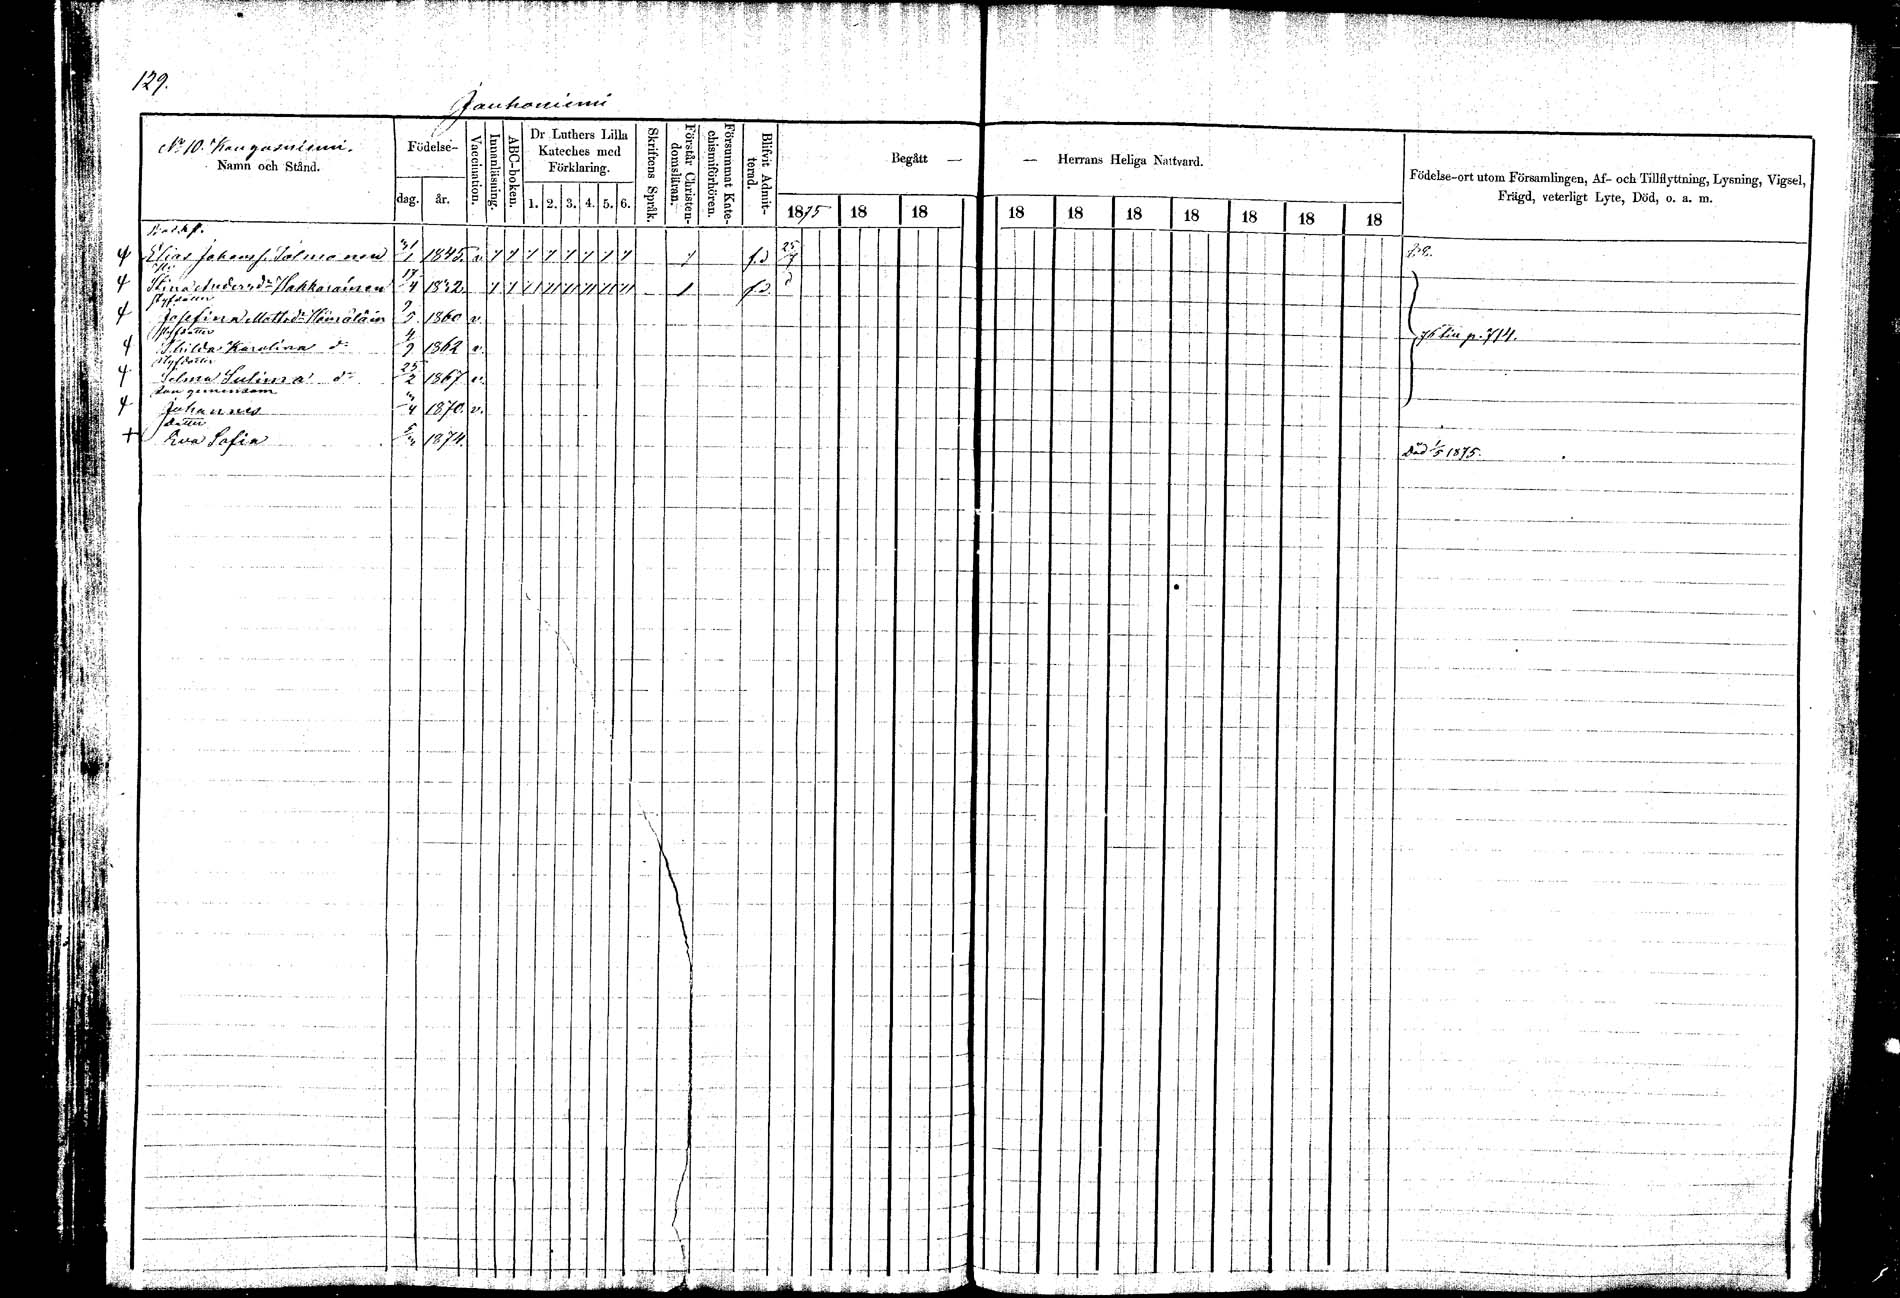 129.
Jauhoniemi
No 10. Kangasniemi.
Namn och Stånd.
Födelse-
dag.
år.
Vaccination.
Innanläsning.
ABC-boken.
Dr Luthers Lilla
Kateches med
Förklaring.
1. 2. 3. 4. 5. 6.
Skriftens Språk.
Förstår Christen-
domsläran.
Försummat Kate-
chismiförhören.
Blifvit Admit-
terad.
Begått —
— Herrans Heliga Nattvard.
1875 18 18 18 18 18 18 18 18 18
Födelse-ort utom Församlingen, Af- och Tillflyttning, Lysning, Vigsel,
Frägd, veterligt Lyte, Död, o. a. m.
Elias Johans s. Tolmanen 31/1 1845. v.
Stina Andersdr Hakkarainen 17/4 1832.
styfdotter
Josefina Mattsdr Hämäläin 9/5 1860 v.
styfdotter
Hilda Karolina dr 4/9 1862 v.
styfdotter
Selma Sulima dr 25/2 1867 v.
son gemensam
Johannes 1870. v.
dotter
Eva Sofia 1874.
p. 714.
Död 1/5 1875.